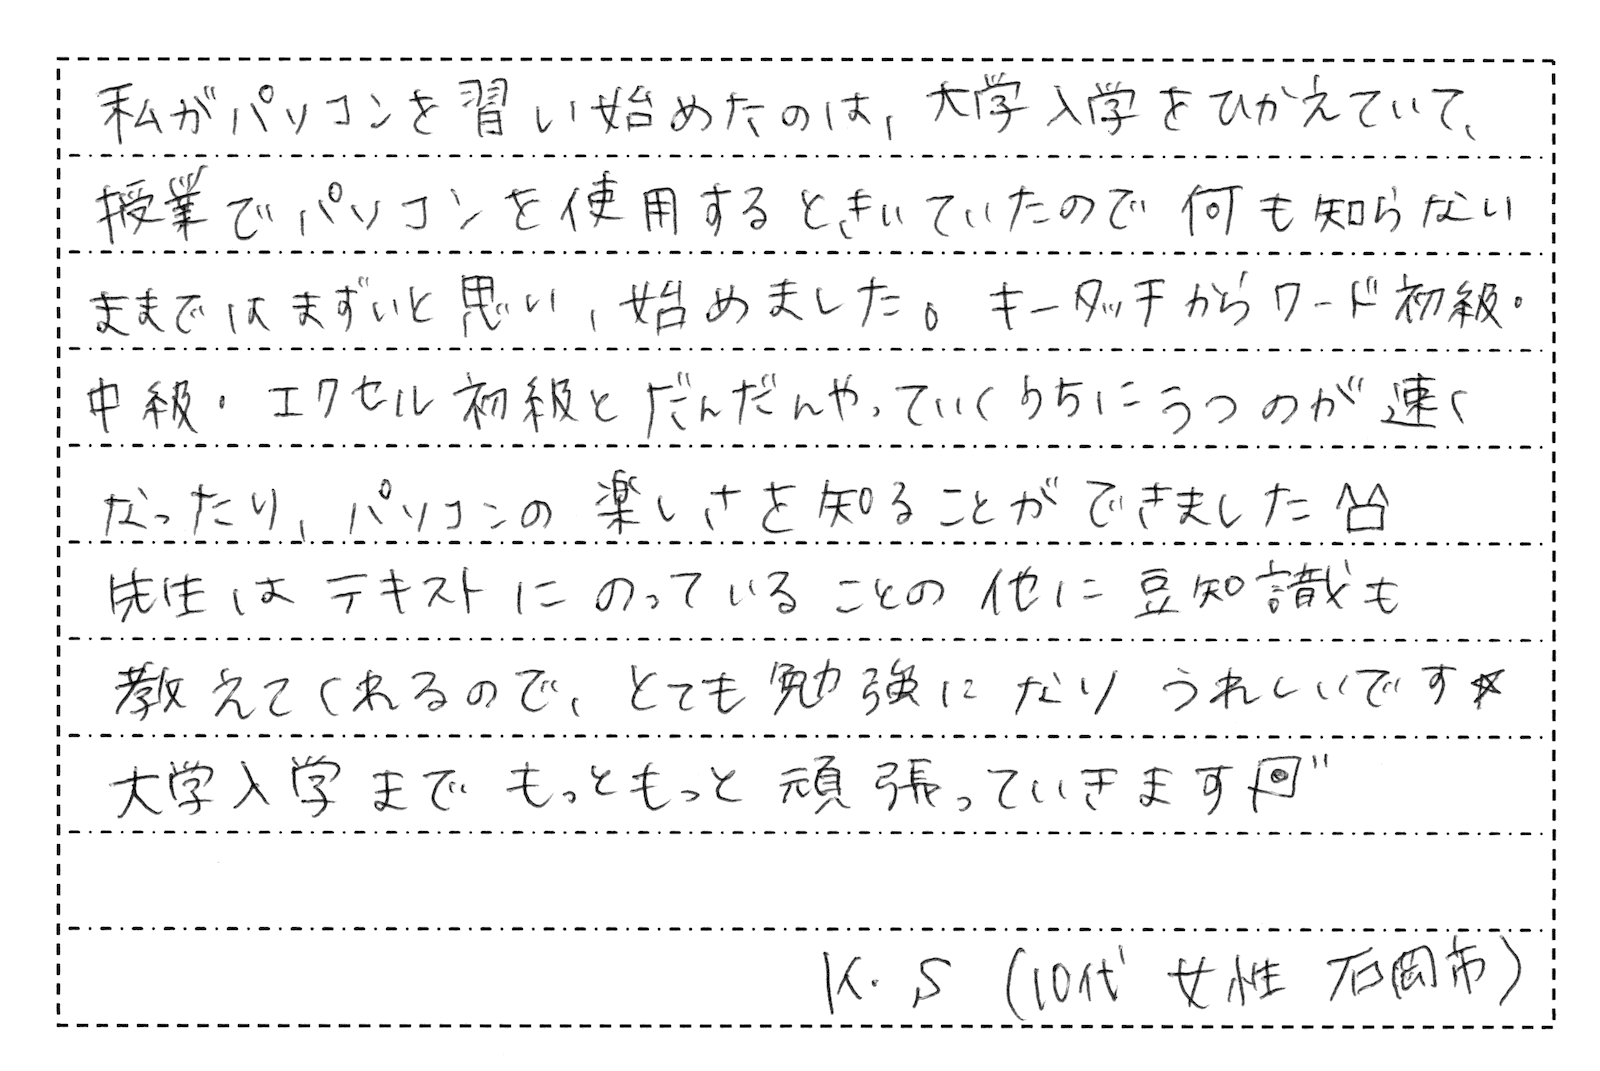 私がパソコンを習い始めたのは、大学入学をひかえていて、
授業でパソコンを使用するときいていたので何も知らない
ままではまずいと思い、始めました。キータッチからワード初級・
中級・エクセル初級とだんだんやっていくうちにうつのが速く
なったり、パソコンの楽しさを知ることができました
先生はテキストにのっていることの他に豆知識も
教えてくれるので、とても勉強になりうれしいです☆
大学入学までもっともっと頑張っていきます
K.S (10代 女性 石岡市)